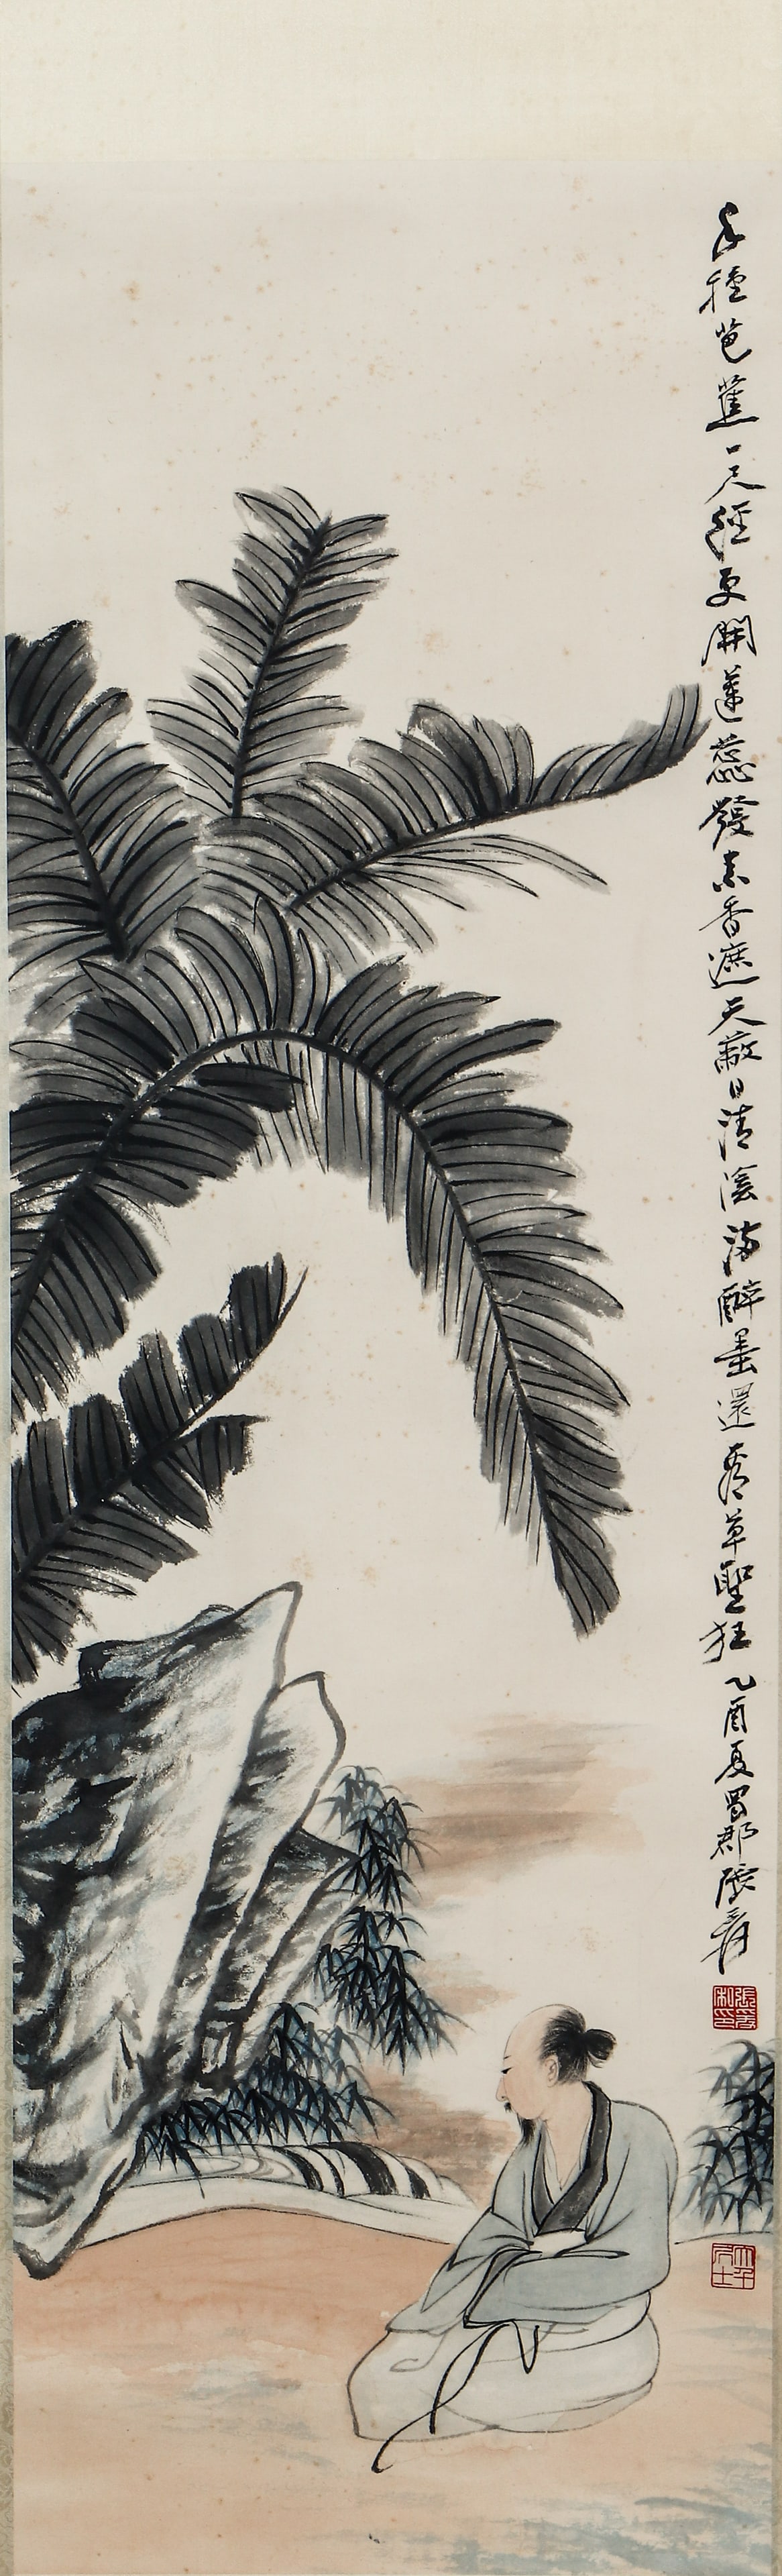 手種芭蕉一尺徑更開蓮蕊發素香遮天蔽日清陰滿醉墨還看草聖狂乙酉夏蜀郡張爰
張爰私印
大千居士